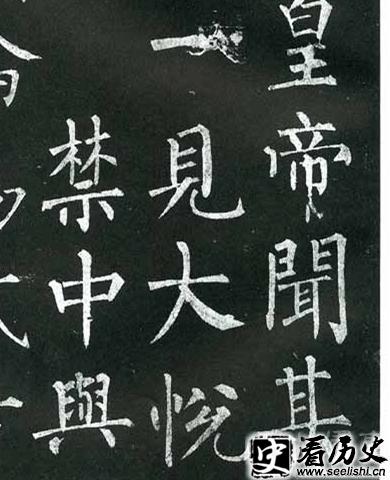 皇帝聞其
一見大悅
禁中與
史 看历史
www.seelishi.cn